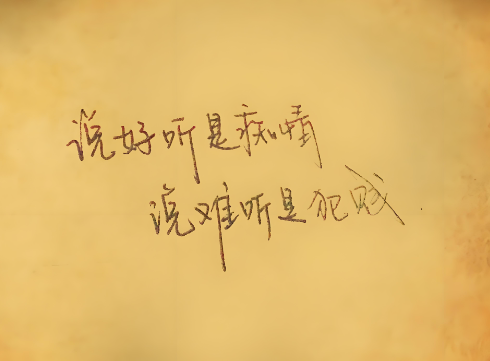 说好听是痴情
说难听是犯贱